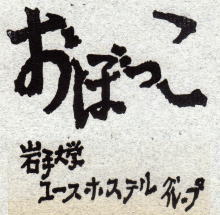 おぼっこ
岩手大学
ユースホステルグループ